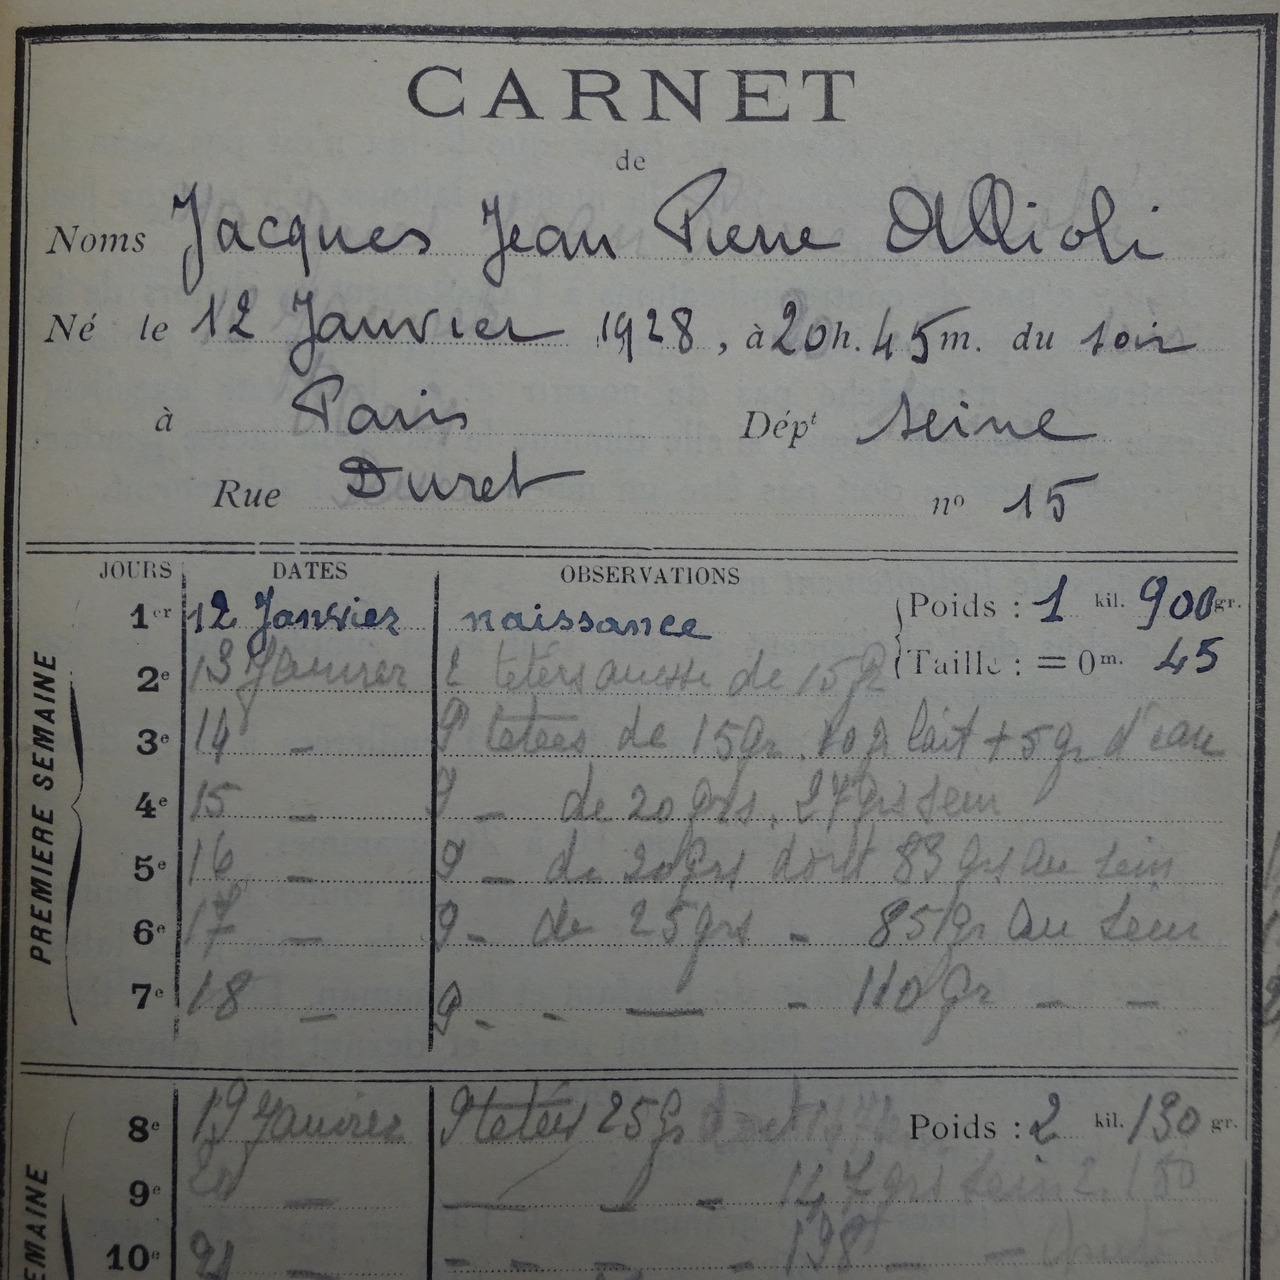 CARNET
de
Noms Jacques Jean Pierre Allioli
Né le 12 Janvier 1928, à 20h. 45m. du soir
à Paris Dépt Seine
Rue Duret no 15
JOURS DATES OBSERVATIONS
PREMIERE SEMAINE
1er 12 Janvier naissance Poids : 1 kil. 900 gr.
2e 13 Janvier de 15 gr Taille : = 0m. 45
3e 14 — 9 tetées de 15gr. 10 gr lait + 5 gr d'eau
4e 15 — 9 — de 20 grs. 27 grs sein
5e 16 — 9 — de 20 grs dont 83 grs au sein
6e 17 — 9 — de 25 grs — 85 gr au sein
7e 18 — 9 - - — - 110 gr — —
EMAINE
8e 19 Janvier 9 tetées 25 gr dont Poids : 2 kil. 130 gr.
9e 20 — — — - 147 grs sein 2.150
10e 21 — - - - - 198 — —